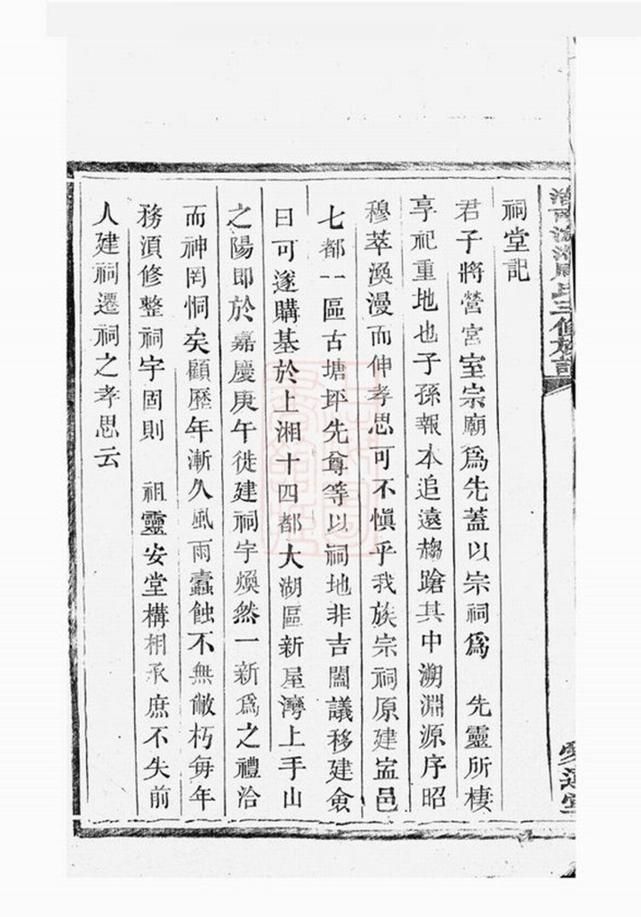 氏三修族譜
愛蓮堂
祠堂記
君子將營宮室宗廟爲先蓋以宗祠爲　先靈所棲
享祀重地也子孫報本追遠趨蹌其中溯淵源序昭
穆萃渙漫而伸孝思可不愼乎我族宗祠原建寍邑
七都一區古塘坪先尊等以祠地非吉闔議移建僉
曰可遂購基於上湘十四都大湖區新屋灣上手山
之陽即於嘉慶庚午徙建祠宇煥然一新爲之禮洽
而神罔恫矣顧歷年漸久風雨蠹蝕不無敝朽每年
務湏修整祠宇固則　祖靈安堂構相承庶不失前
人建祠遷祠之孝思云